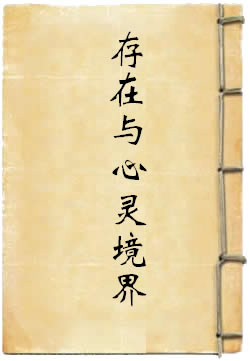 存在与心灵境界